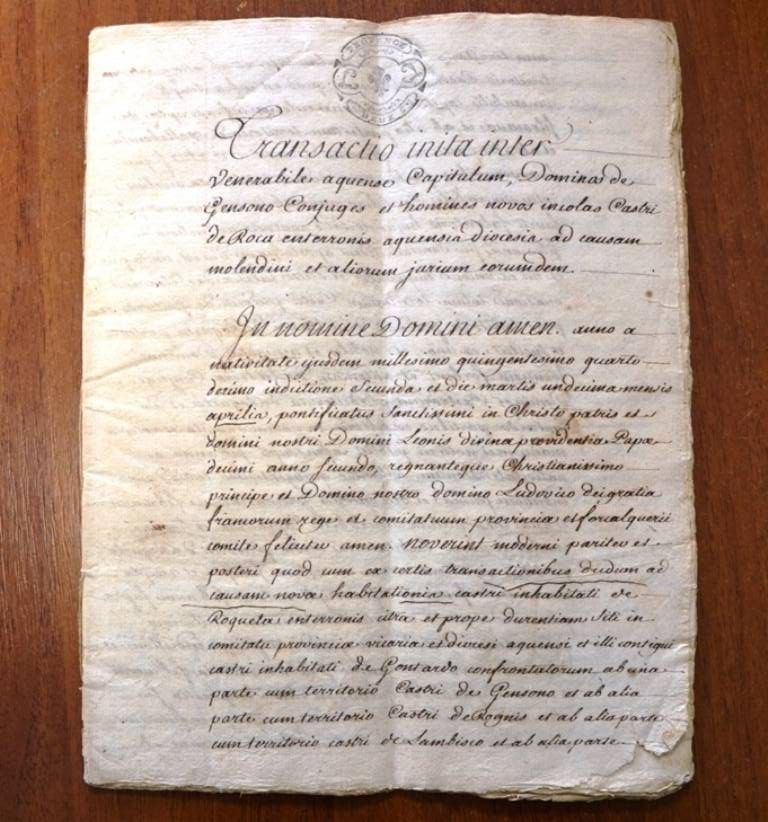 PROVENCE
Transactio inita inter
venerabile aquense Capitulum, Dominos de
Gensono Conjuges et homines novos incolas Castri
de Roca enterronis aquensis diocesis ad causam
molendini et aliorum jurium eorumdem.
In nomine Domini amen. anno a
nativitate ejusdem millesimo quingentesimo quarto
decimo indictione secunda et die martis undecima mensis
aprilis, pontificatus sanctissimi in Christo patris et
domini nostri Domini Leonis divina providentia Papæ
decimi anno secundo, regnanteque Christianissimo
principe et Domino nostro domino Ludovico dei gratia
francorum rege et comitatuum provinciæ et forcalquerii
comite feliciter amen. noverint moderni pariter et
posteri quod cum ex certis transactionibus dudum ad
causam novæ habitationis castri inhabitati de
Roqueta enterronis citra et prope durentiam siti in
comitatu provinciæ vicaria et diocesi aquensi et illi contigui
castri inhabitati de Gontardo confrontatorum ab una
parte cum territorio Castri de Gensono et ab alia
parte cum territorio Castri de Rognis et ab alia parte
cum territorio castri de Lambisco et ab alia parte